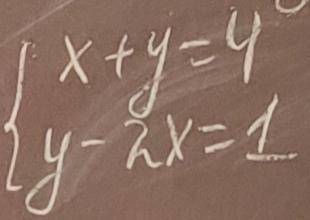 x+y=4
y-2x=1